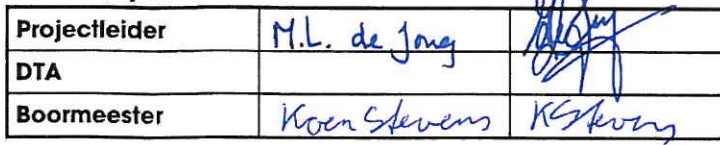 Projectleider M.L. de Jong
DTA
Boormeester Koen Stevens KStevens